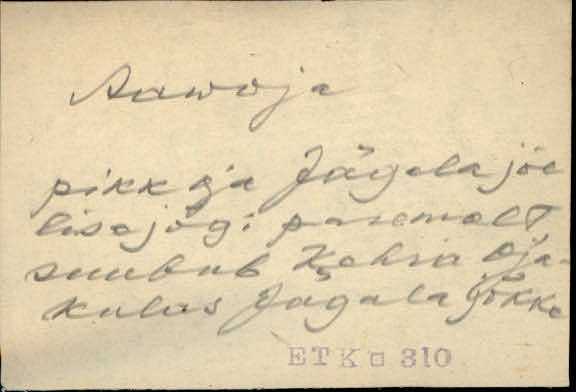 Aawoja
pikk oja Jägala jõe
lisajõgi paremalt,
suubub Kehra Oja-
külas Jägala jõkke
ETK 310